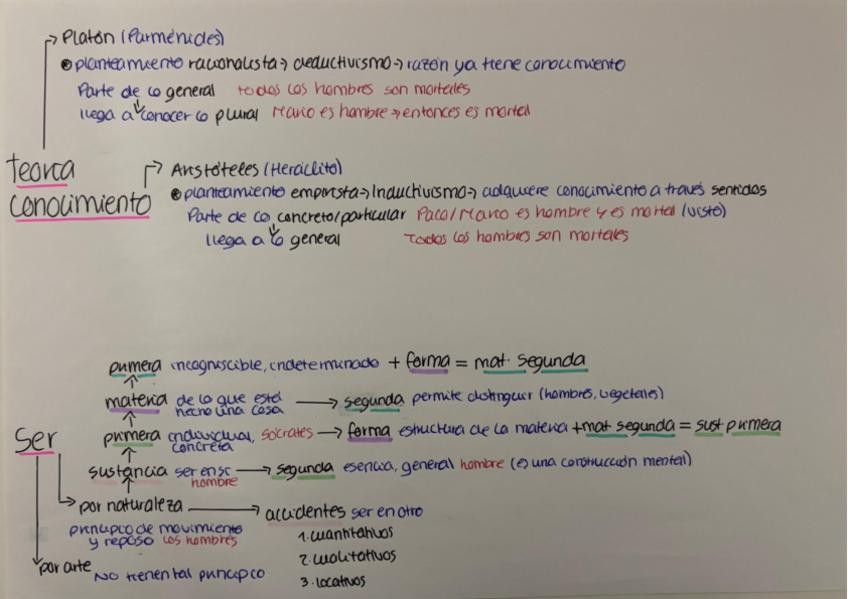 Platón (Parménides)
planteamiento racionalista → deductivismo → razón ya tiene conocimiento
Parte de lo general todos los hombres son mortales
llega a conocer lo plural Mario es hombre → entonces es mortal
teoría
conocimiento
Aristóteles (Heráclito)
planteamiento empirista → Inductivismo → adquiere conocimiento a través sentidos
Parte de lo concreto/particular Paco/Mario es hombre y es mortal (visto)
llega a lo general todos los hombres son mortales
primera incogniscible, indeterminado + forma = mat. segunda
materia de lo que está hecho una cosa → segunda permite distinguir (hombres, vegetales)
Ser
primera individual, concreta sócrates → forma estructura de la materia + mat segunda = sust primera
sustancia ser en sí hombre → segunda esencia, general hombre (es una construcción mental)
por naturaleza → accidentes ser en otro
principio de movimiento
y reposo los hombres
1. cuantitativos
2. cualitativos
3. locativos
por arte No tienen tal principio